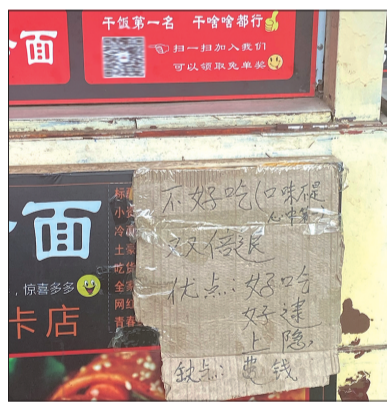 干饭第一名 干啥啥都行
面
扫一扫加入我们
可以领取免单奖
面
惊喜多多
卡店
标
小
冷
土豪
吃货
全家
网红
青春
不好吃(口味碮
双倍退
优点:好吃
好速
上隐
缺点:费钱